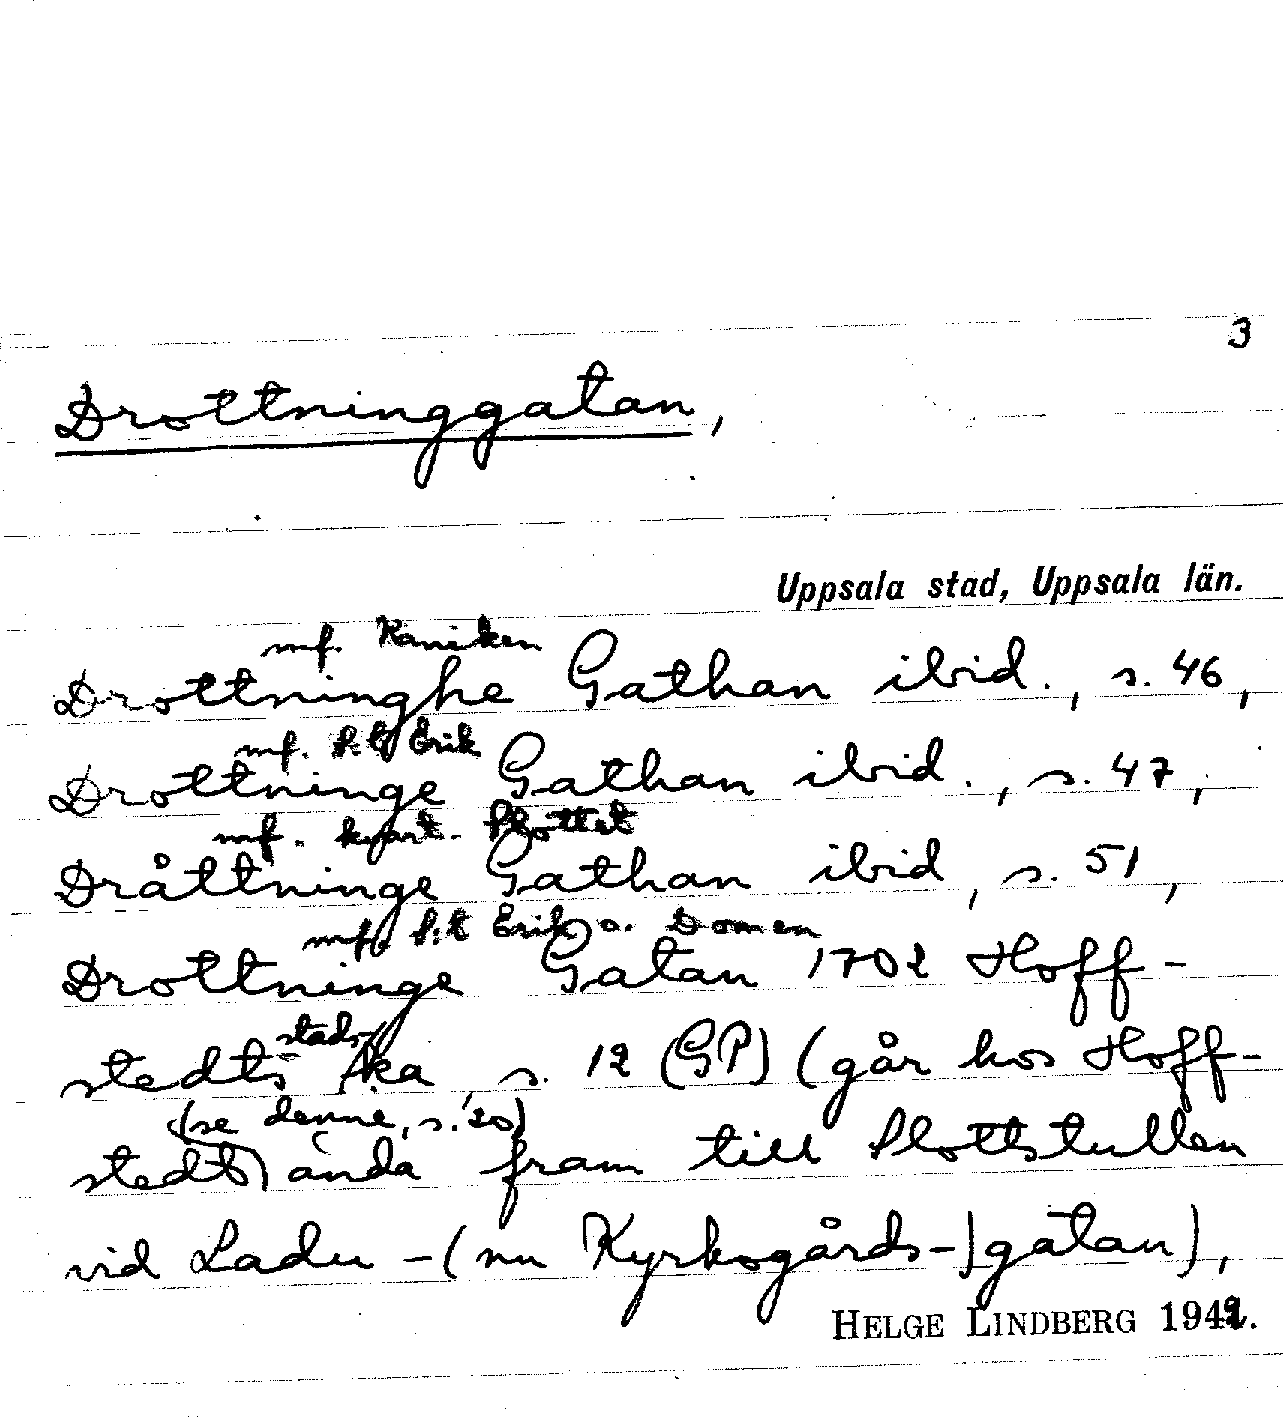 3
Drottninggatan,
Uppsala stad, Uppsala län.
mf. Kaniken
Drottninghe Gathan ibid., s. 46,
mf. S:t Erik
Drottninge Gathan ibid., s. 47,
mf. kvart. Slottet
Dråttninge Gathan ibid, s. 51,
mf. S:t Erik o. Domen
Drottninge Gatan 1702 Hoff-
stads-
stedts Aka, s. 12 (GP) (går hos Hoff-
(se denne, s. 20)
stedt) ända fram till Slottstullen
vid Ladu-(nu Kyrkogårds-)gatan),
HELGE LINDBERG 1942.